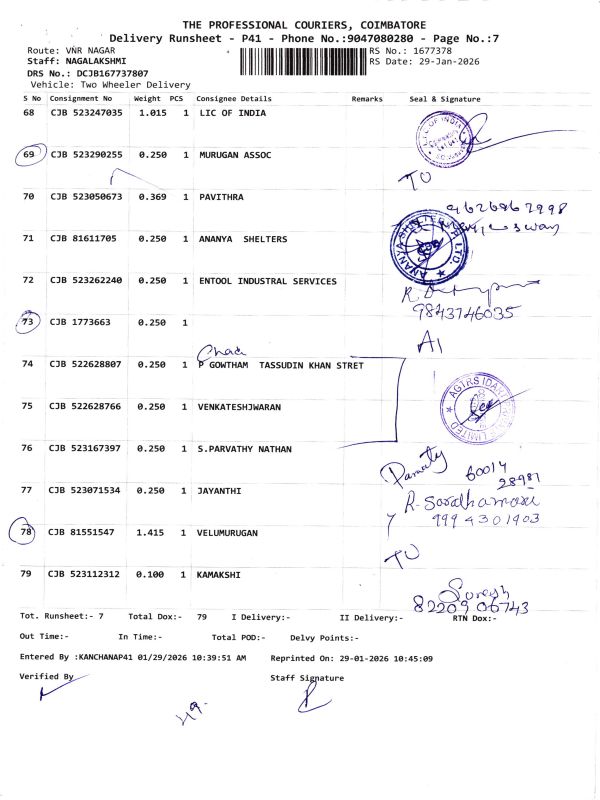 THE PROFESSIONAL COURIERS, COIMBATORE
Delivery Runsheet - P41 - Phone No.:9047080280 - Page No.:7
Route: VNR NAGAR RS No.: 1677378
Staff: NAGALAKSHMI RS Date: 29-Jan-2026
DRS No.: DCJB167737807
Vehicle: Two Wheeler Delivery
S No Consignment No Weight PCS Consignee Details Remarks Seal & Signature
68 CJB 523247035 1.015 1 LIC OF INDIA
LIC OF INDIA
69 CJB 523290255 0.250 1 MURUGAN ASSOC
TO
70 CJB 523050673 0.369 1 PAVITHRA
9626862998
71 CJB 81611705 0.250 1 ANANYA SHELTERS
ANANYA SHELTERS LTD.
72 CJB 523262240 0.250 1 ENTOOL INDUSTRAL SERVICES
9843746035
73 CJB 1773663 0.250 1
AI
74 CJB 522628807 0.250 1 P GOWTHAM TASSUDIN KHAN STRET
75 CJB 522628766 0.250 1 VENKATESHJWARAN
LIMITED
76 CJB 523167397 0.250 1 S.PARVATHY NATHAN
60014
28981
77 CJB 523071534 0.250 1 JAYANTHI
9994301903
78 CJB 81551547 1.415 1 VELUMURUGAN
TO
79 CJB 523112312 0.100 1 KAMAKSHI
Suresh
8220906743
Tot. Runsheet:- 7 Total Dox:- 79 I Delivery:- II Delivery:- RTN Dox:-
Out Time:- In Time:- Total POD:- Delvy Points:-
Entered By :KANCHANAP41 01/29/2026 10:39:51 AM Reprinted On: 29-01-2026 10:45:09
Verified By Staff Signature